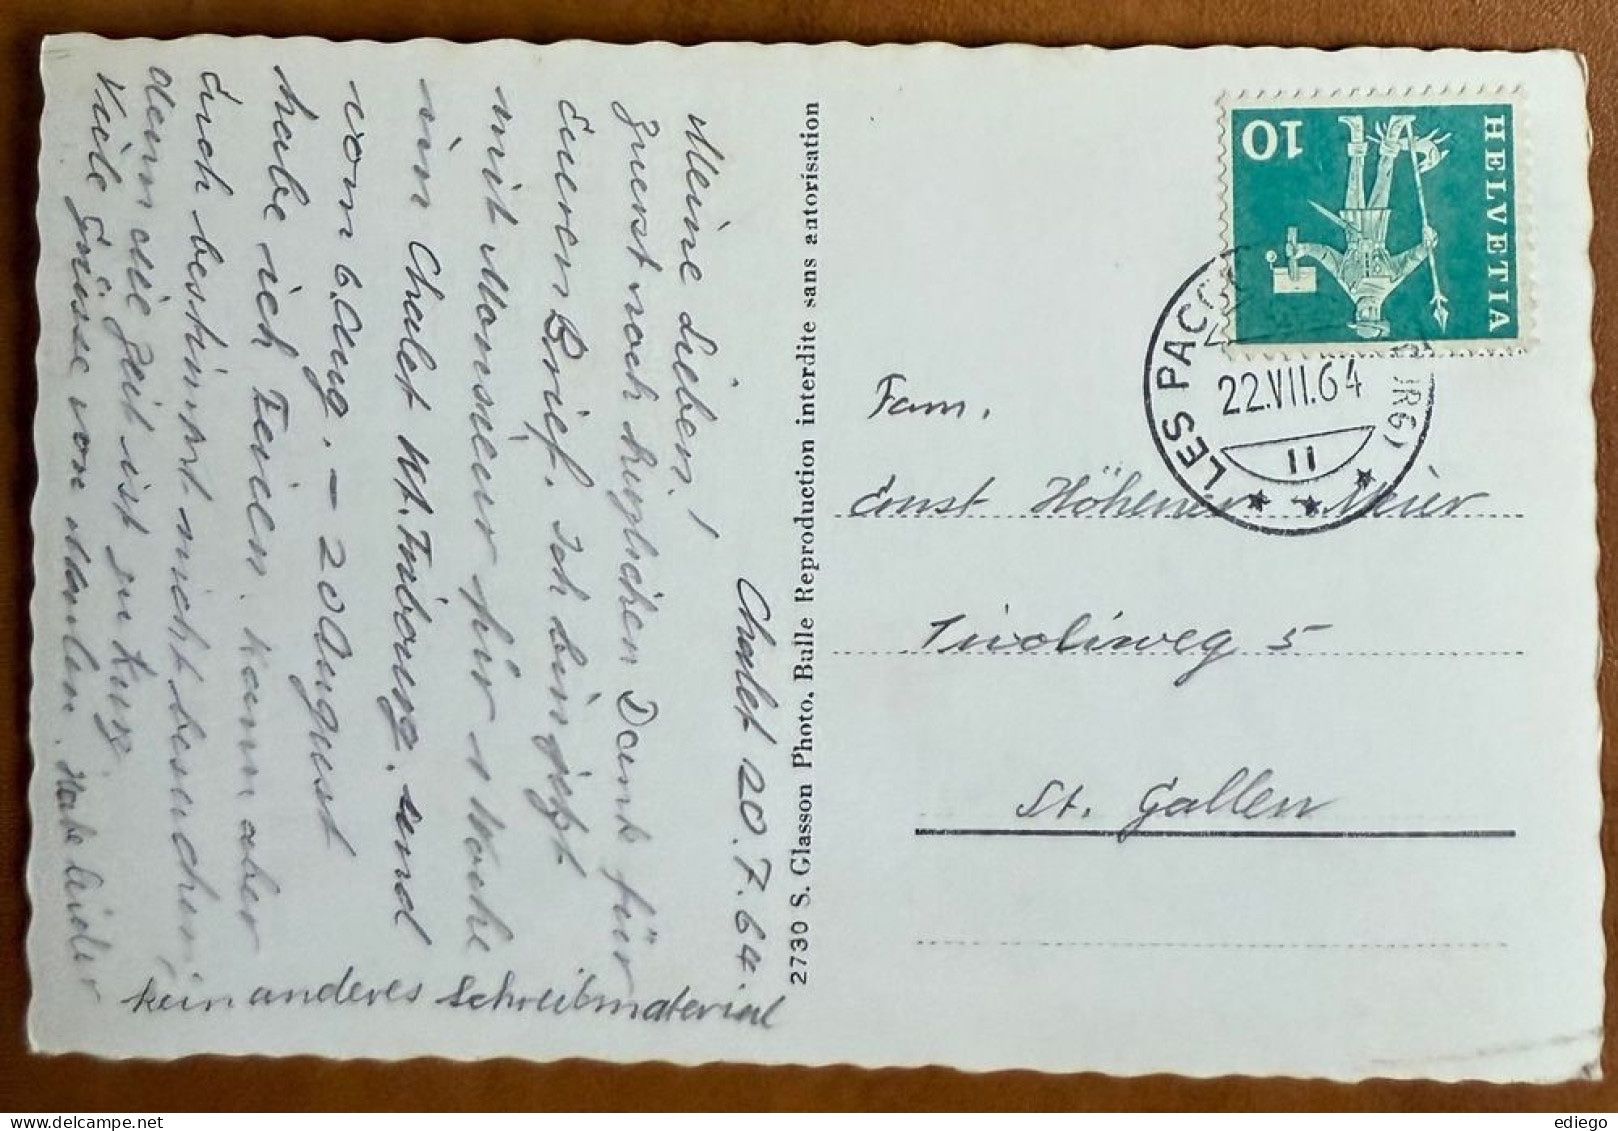 Chalet 20.7.64
Meine Lieben!
Zuerst noch herzlichen Dank für
Eueren Brief. Ich bin jetzt
mit Monsieur für 1 Woche
im Chalet Kt. Fribourg, und
vom 6. Aug. – 20 August
habe ich Ferien. Kann aber
Euch bestimmt nicht besuchen,
denn die Zeit ist zu kurz.
Viele Grüsse von
Habe leider
kein anderes Schreibmaterial
2730 S. Glasson Photo. Bulle Reproduction interdite sans autorisation
HELVETIA
10
LES PACC
22.VII.64
11
Fam.
Ernst Höhener Meier
Tivoliweg 5
St. Gallen
ediego